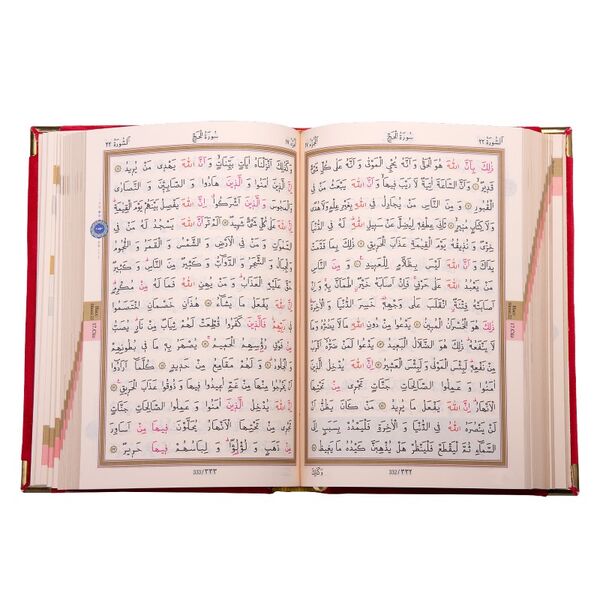 اَلسُّورَةُ ٢٢
سُورَةُ الْحَجِّ
ذٰلِكَ بِاَنَّ اللّٰهَ هُوَ الْحَقُّ وَ اَنَّهُ يُحْيِ الْمَوْتٰى وَ اَنَّهُ عَلٰى كُلِّ شَيْءٍ
قَدِيرٌ ۞ وَ اَنَّ السَّاعَةَ اٰتِيَةٌ لَا رَيْبَ فِيهَا وَ اَنَّ اللّٰهَ يَبْعَثُ مَنْ فِي
الْقُبُورِ ۞ وَ مِنَ النَّاسِ مَنْ يُجَادِلُ فِي اللّٰهِ بِغَيْرِ عِلْمٍ وَ لَا هُدًى
وَ لَا كِتَابٍ مُنِيرٍ ۞ ثَانِيَ عِطْفِهِ لِيُضِلَّ عَنْ سَبِيلِ اللّٰهِ لَهُ فِي الدُّنْيَا
خِزْيٌ وَ نُذِيقُهُ يَوْمَ الْقِيٰمَةِ عَذَابَ الْحَرِيقِ ۞ ذٰلِكَ بِمَا قَدَّمَتْ
يَدَاكَ وَ اَنَّ اللّٰهَ لَيْسَ بِظَلَّامٍ لِلْعَبِيدِ ۞ وَ مِنَ النَّاسِ
مَنْ يَعْبُدُ اللّٰهَ عَلٰى حَرْفٍ فَاِنْ اَصَابَهُ خَيْرٌ اطْمَاَنَّ بِهِ وَ اِنْ
اَصَابَتْهُ فِتْنَةٌ انْقَلَبَ عَلٰى وَجْهِهِ خَسِرَ الدُّنْيَا وَ الْاٰخِرَةَ
ذٰلِكَ هُوَ الْخُسْرَانُ الْمُبِينُ ۞ يَدْعُوا مِنْ دُونِ اللّٰهِ مَا لَا يَضُرُّهُ وَ مَا
لَا يَنْفَعُهُ ذٰلِكَ هُوَ الضَّلَالُ الْبَعِيدُ ۞ يَدْعُوا لَمَنْ ضَرُّهُ اَقْرَبُ
مِنْ نَفْعِهِ لَبِئْسَ الْمَوْلٰى وَ لَبِئْسَ الْعَشِيرُ ۞ اِنَّ اللّٰهَ يُدْخِلُ
الَّذِينَ اٰمَنُوا وَ عَمِلُوا الصَّالِحَاتِ جَنَّاتٍ تَجْرِي مِنْ تَحْتِهَا
الْاَنْهَارُ اِنَّ اللّٰهَ يَفْعَلُ مَا يُرِيدُ ۞ مَنْ كَانَ يَظُنُّ اَنْ
لَنْ يَنْصُرَهُ اللّٰهُ فِي الدُّنْيَا وَ الْاٰخِرَةِ فَلْيَمْدُدْ بِسَبَبٍ اِلَى
السَّمَاءِ ثُمَّ لْيَقْطَعْ فَلْيَنْظُرْ هَلْ يُذْهِبَنَّ كَيْدُهُ مَا يَغِيظُ ۞
332/٣٣٢
وَكَذٰلِكَ
اَلسُّورَةُ ٢٢
سُورَةُ الْحَجِّ
وَ كَذٰلِكَ اَنْزَلْنَاهُ اٰيَاتٍ بَيِّنَاتٍ وَ اَنَّ اللّٰهَ يَهْدِي مَنْ يُرِيدُ ۞
اِنَّ الَّذِينَ اٰمَنُوا وَ الَّذِينَ هَادُوا وَ الصَّابِئِينَ وَ النَّصَارٰى
وَ الْمَجُوسَ وَ الَّذِينَ اَشْرَكُوا اِنَّ اللّٰهَ يَفْصِلُ بَيْنَهُمْ يَوْمَ الْقِيٰمَةِ
اِنَّ اللّٰهَ عَلٰى كُلِّ شَيْءٍ شَهِيدٌ ۞ اَلَمْ تَرَ اَنَّ اللّٰهَ يَسْجُدُ لَهُ مَنْ فِي
السَّمٰوَاتِ وَ مَنْ فِي الْاَرْضِ وَ الشَّمْسُ وَ الْقَمَرُ وَ النُّجُومُ
وَ الْجِبَالُ وَ الشَّجَرُ وَ الدَّوَابُّ وَ كَثِيرٌ مِنَ النَّاسِ وَ كَثِيرٌ
حَقَّ عَلَيْهِ الْعَذَابُ وَ مَنْ يُهِنِ اللّٰهُ فَمَا لَهُ مِنْ مُكْرِمٍ
اِنَّ اللّٰهَ يَفْعَلُ مَا يَشَاءُ ۞ هٰذَانِ خَصْمَانِ اخْتَصَمُوا
فِي رَبِّهِمْ فَالَّذِينَ كَفَرُوا قُطِّعَتْ لَهُمْ ثِيَابٌ مِنْ نَارٍ يُصَبُّ
مِنْ فَوْقِ رُؤُسِهِمُ الْحَمِيمُ ۞ يُصْهَرُ بِهِ مَا فِي بُطُونِهِمْ
وَ الْجُلُودُ ۞ وَ لَهُمْ مَقَامِعُ مِنْ حَدِيدٍ ۞ كُلَّمَا اَرَادُوا
اَنْ يَخْرُجُوا مِنْهَا مِنْ غَمٍّ اُعِيدُوا فِيهَا وَ ذُوقُوا عَذَابَ الْحَرِيقِ ۞
اِنَّ اللّٰهَ يُدْخِلُ الَّذِينَ اٰمَنُوا وَ عَمِلُوا الصَّالِحَاتِ جَنَّاتٍ
تَجْرِي مِنْ تَحْتِهَا الْاَنْهَارُ يُحَلَّوْنَ فِيهَا مِنْ اَسَاوِرَ
مِنْ ذَهَبٍ وَ لُؤْلُؤًا وَ لِبَاسُهُمْ فِيهَا حَرِيرٌ ۞
333/٣٣٣